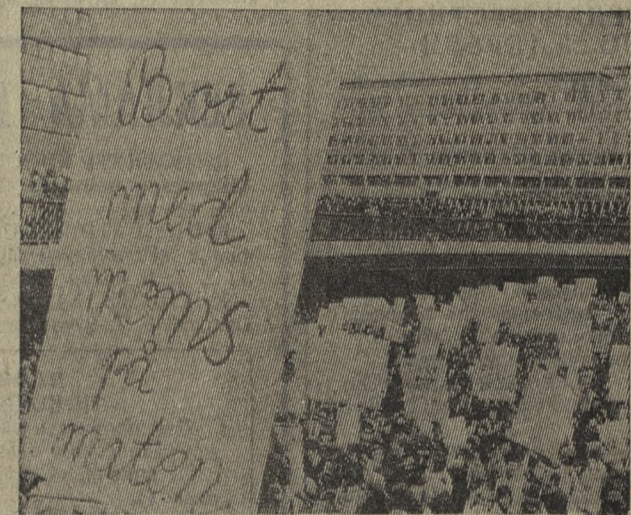 Bort
med
moms
på
maten